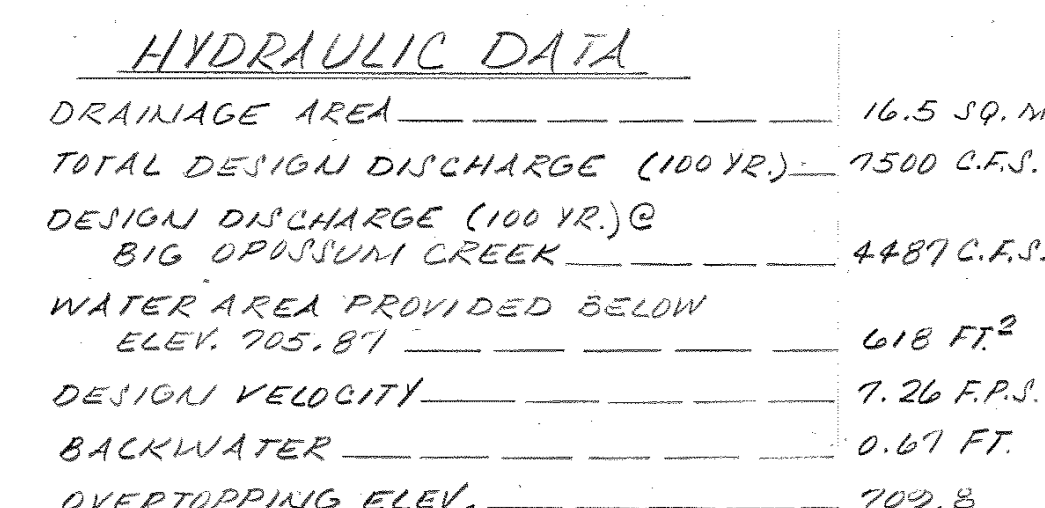 HYDRAULIC DATA
DRAINAGE AREA 16.5 SQ. M
TOTAL DESIGN DISCHARGE (100 YR.) 7500 C.F.S.
DESIGN DISCHARGE (100 YR.) @
BIG OPOSSUM CREEK 4487 C.F.S.
WATER AREA PROVIDED BELOW
ELEV. 705.87 618 FT.²
DESIGN VELOCITY 7.26 F.P.S.
BACKWATER 0.67 FT.
OVERTOPPING ELEV. 709.8